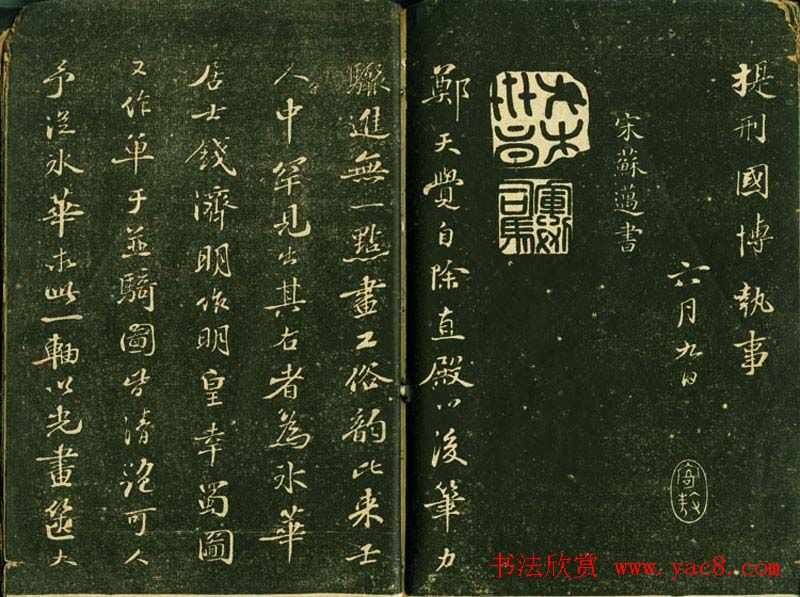 提刑國博執事
六月九日
宋蘇邁書
鄭天覺自除直殿以後筆力
驟進無一點畫工俗韵比來士
人中罕見出其右者為水華
居士錢濟明作明皇幸蜀圖
又作單于並騎圖皆清絕可人
予從水華求此一軸以光畫篋大
书法欣赏
www.yac8.com